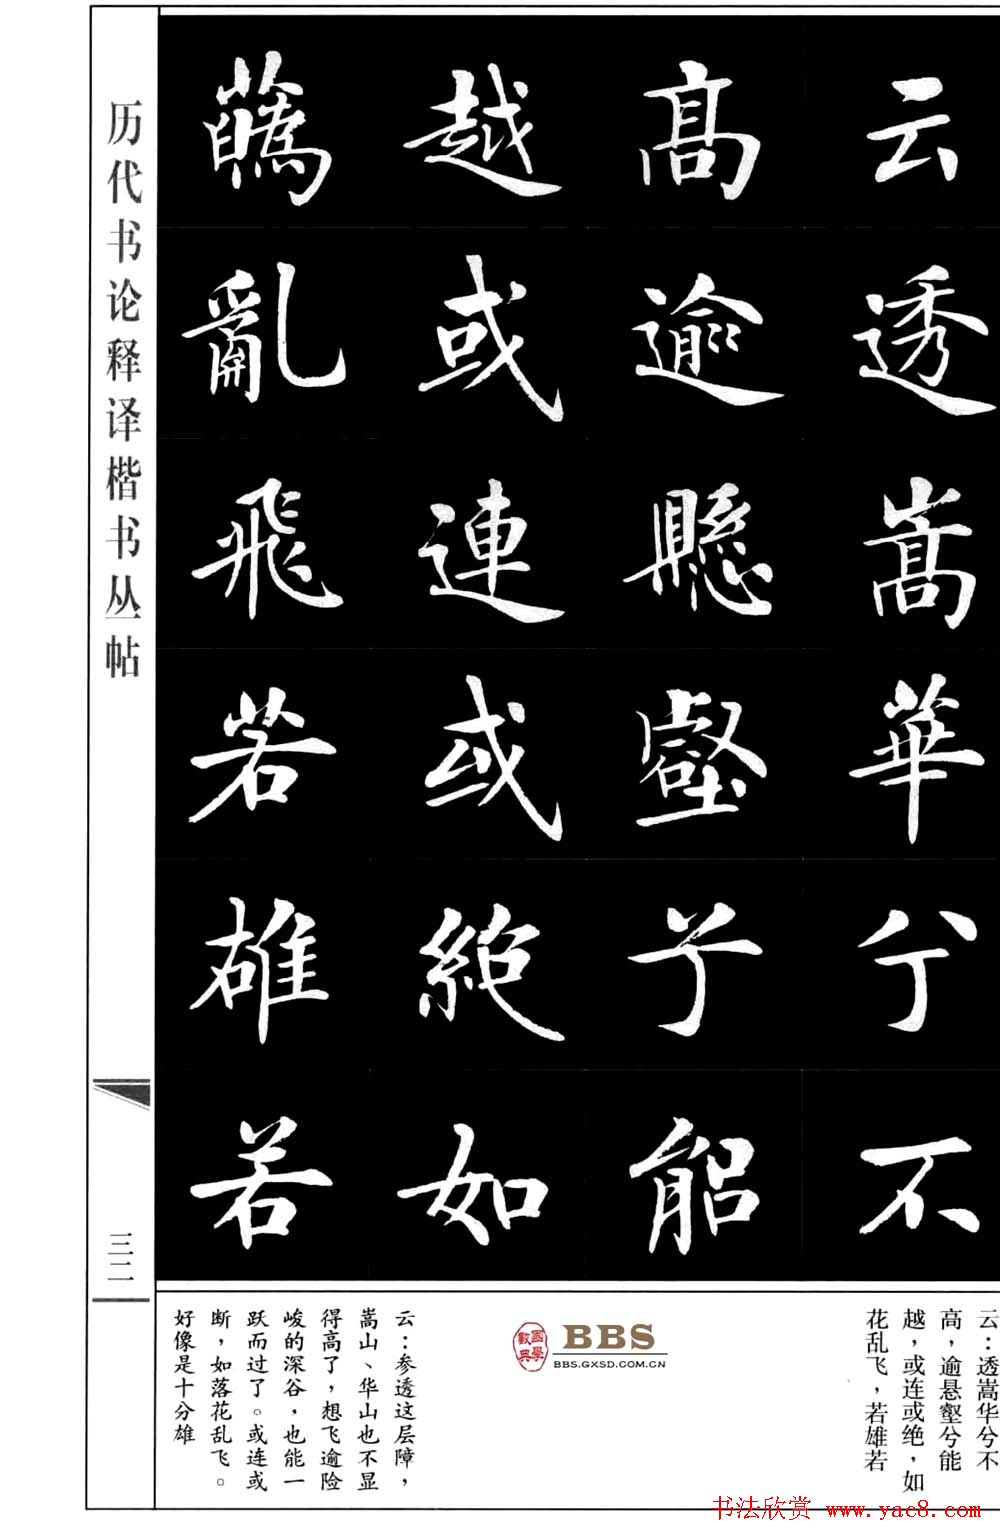 云透嵩華兮不
高逾懸壑兮能
越或連或絶如
蘤亂飛若雄若
历代书论释译楷书丛帖
三二
云：透嵩华兮不
高，逾悬壑兮能
越，或连或绝，如
花乱飞，若雄若
國學數典
BBS
BBS.GXSD.COM.CN
云：参透这层障，
嵩山、华山也不显
得高了，想飞逾险
峻的深谷，也能一
跃而过了。或连或
断，如落花乱飞。
好像是十分雄
书法欣赏 www.yac8.com